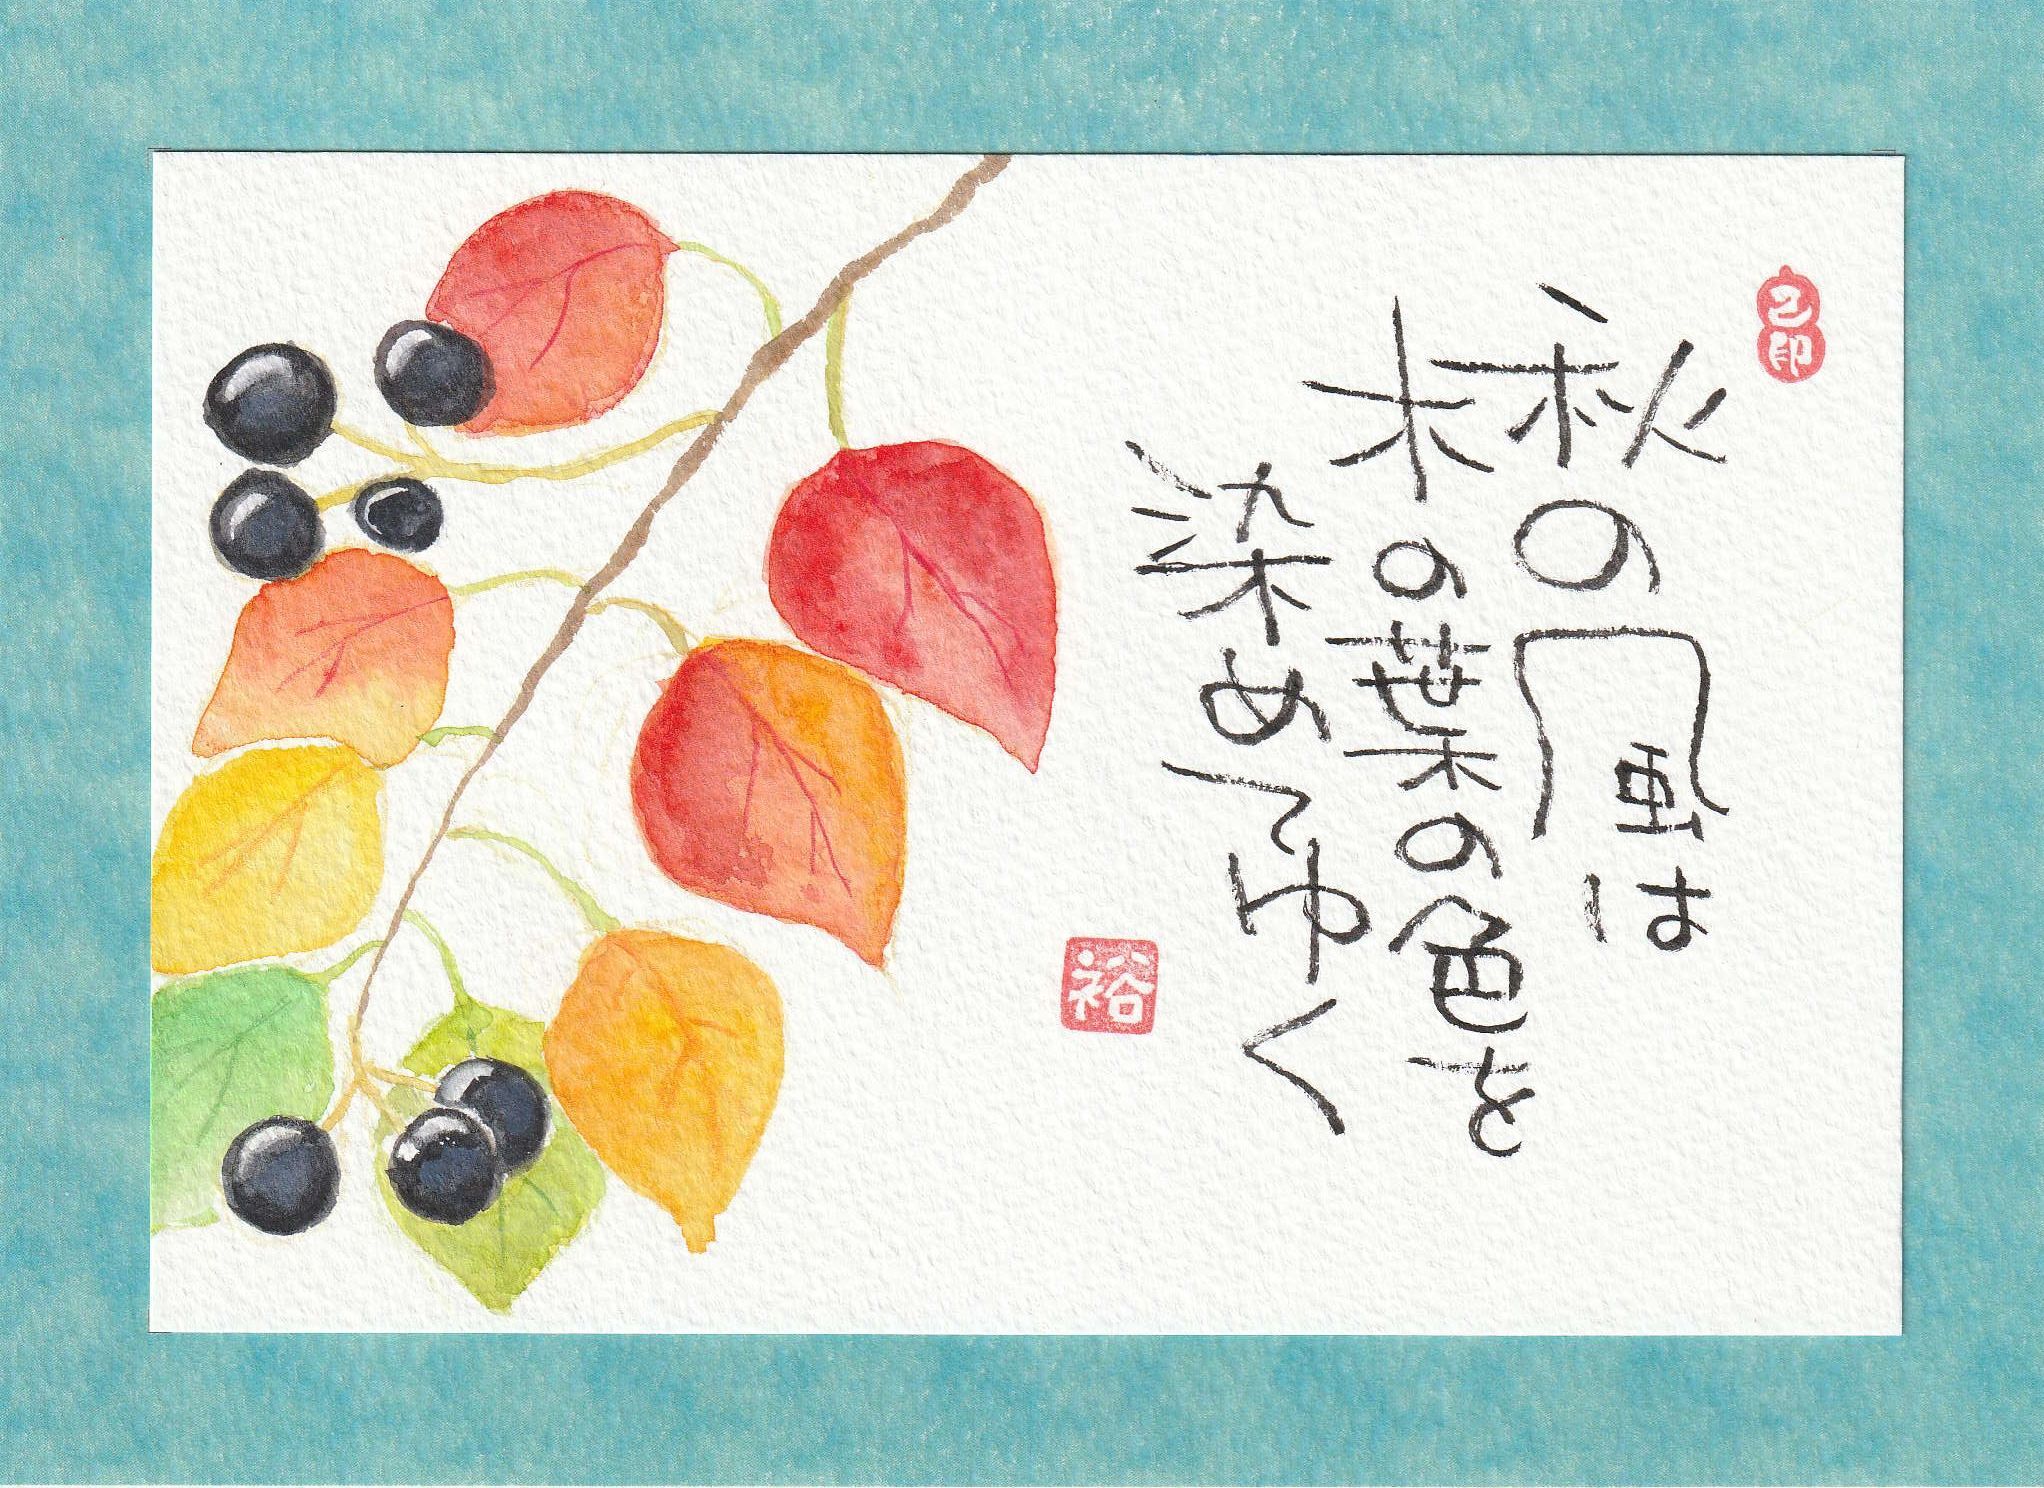 秋の風は
木の葉の色を
染めてゆく
裕